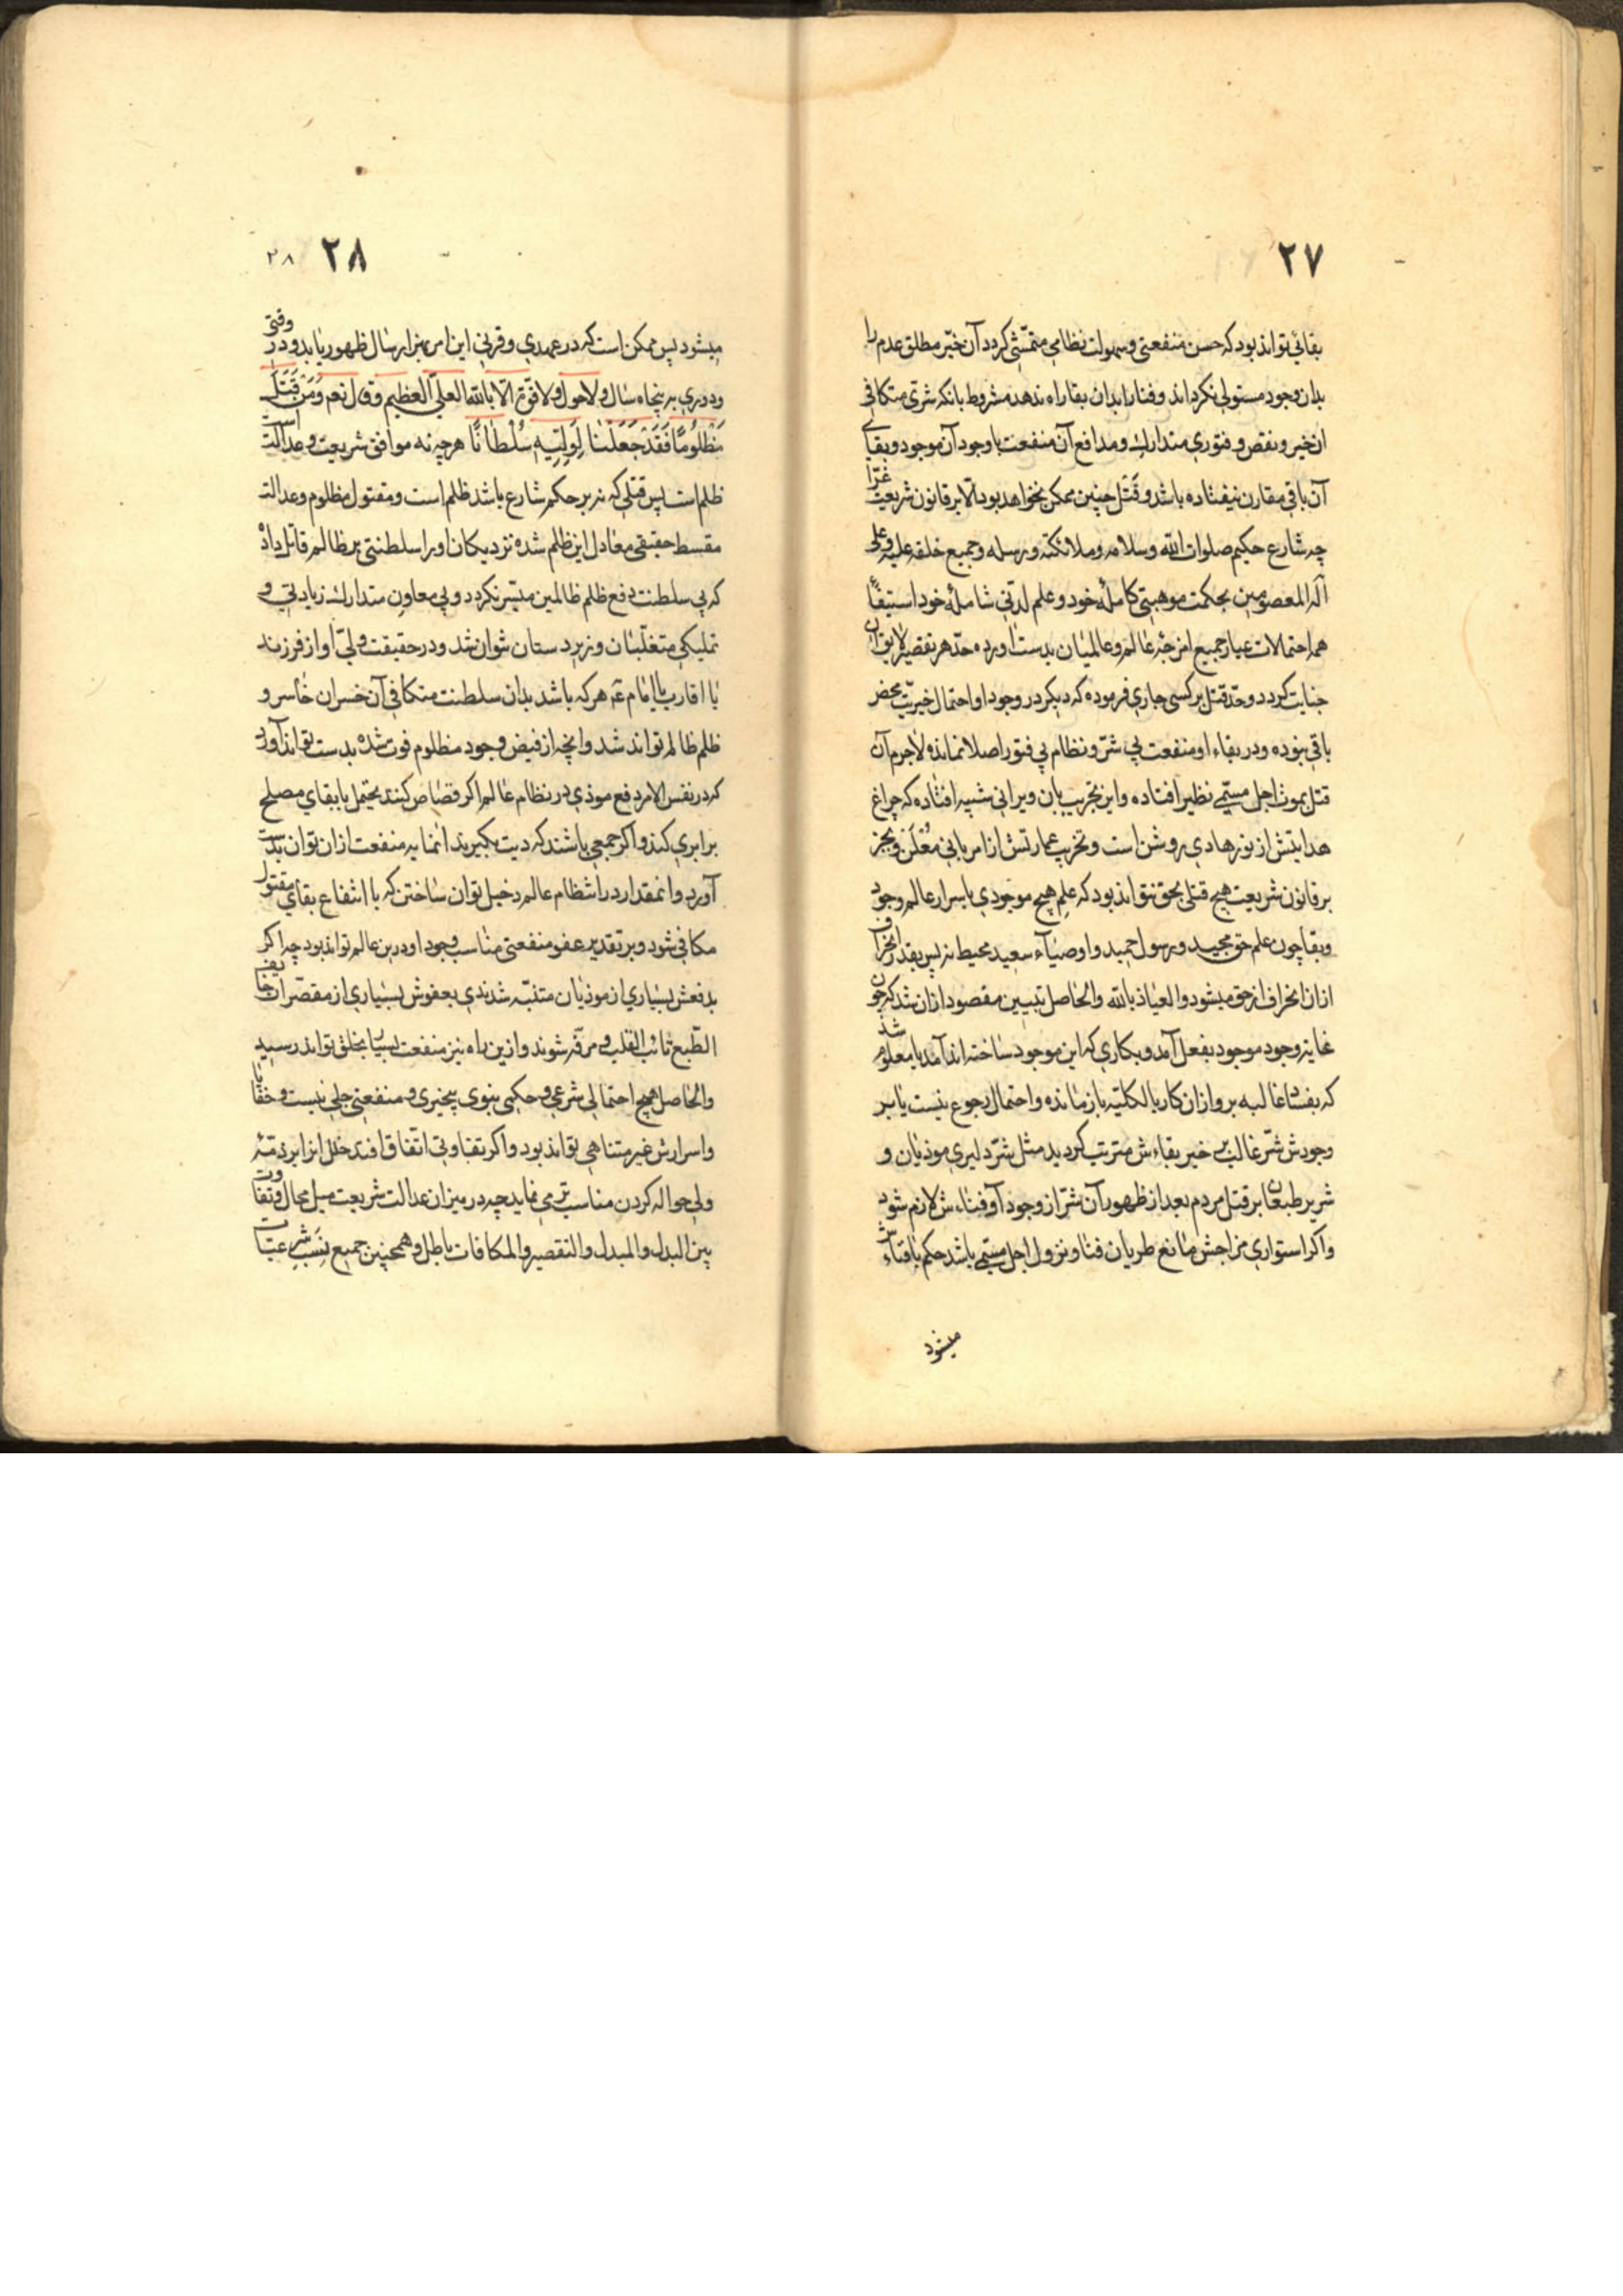 ٢٧
بقائی تواند بود که حسن منفعتی و سهولت نظامی متمشّی کردد آن خیّر مطلق عدم را
بدان وجود مستولی نکرداند و فنا را بدان بقا راه ندهد مشروط بانکه شرّی متکافی
ان خیر و نقص و فتوری متدارك و مدافع آن منفعت با وجود آن موجود و بقای
آن باقی مقارن نیفتاده باشد و قَتل چنین ممکن نخواهد بود الّا بر قانون شریعت غرّا
چه شارع حکیم صلوات الله و سلامه و ملائکته و رسله و جمیع خلقه علیه و علی
آله المعصومین بحکمت موهبتی کاملهٔ خود و علم لدنّی شاملهٔ خود استیفاءً
همه احتمالات عیار جمیع امزجهٔ عالم و عالمیان بدست اورده حدّ هر تقصیر لایق آن
جنایت کردد و حدّ قتل بر کسی جاری فرموده که دیکر در وجود او احتمال خیریّت محض
باقی نبوده و در بقاء او منفعت بی شرّ و نظام بی فتور اصلا نماند و لاجرم آن
قتل بموت اجل مسمّی نظیر افتاده و این تخریب بان ویرانی شبیه افتاده که چراغ
هدایتش از نور هادی روشن است و تخریب عمارتش از امر بانی مُعْلَن و بجز
بر قانون شریعت هیچ قتلی بحق نتواند بود که علم هیچ موجودی باسرار عالم وجود
و بقا چون علم حق مجید و رسول حمید و اوصیآء سعید محیط نه پس بقدر انحراف
ازان انحراف از حق میشود و العیاذ بالله والحاصل تبیین مقصود ازان شد که چون
غایة وجود موجود بفعل آمد و بکاری که این موجود ساخته اند آمد یا معلوم شد
که بفساد غالبه بر و ازان کار بالکلیّه باز مانده و احتمال رجوع نیست یا بر
وجودش شرّ غالب بر خیر بقاءش مترتب کردید مثل شرّ دلیری موذیان و
شریر طبعان بر قتل مردم بعد از ظهور آن شرّ از وجود او فناءش لازم شود
و اکر استواری مزاجش مانع طریان فنا و نزول اجل مسمّی باشد حکم بافناءش
میشود
٢٨ ٢٨
میشود پس ممکن است که در عهدی و قرنی این امر بهزار سال ظهور یابد و در وقتی
و دوری به پنجاه سال و لاحول و لا قوّة الّا بالله العلیّ العظیم و ق ل نعم وَمَن قُتِلَ
مَظْلُومًا فَقَدْ جَعَلْنَا لِوَلِیِّهِ سُلْطَانًا هرچه نه موافق شریعت و عدالت است
ظلم است پس قتلی که نه بر حکم شارع باشد ظلم است و مقتول مظلوم و عدالت
مقسط حقیقی معادل این ظلم شده نزدیکان اورا سلطنتی بر ظالم قاتل داد
که بی سلطنت دفع ظلم ظالمین میسّر نکردد و بی معاون متدارك زیادتی و
تملیکی متغلّبان و زبردستان نتوان شد و در حقیقت ولیّ او از فرزند
یا اقارب یا امام عه هرکه باشد بدان سلطنت متکافی آن خسران خاسر و
ظلم ظالم تواند شد و انچه از فیض وجود مظلوم فوت شده بدست تواند آورد
که در نفس الامر دفع موذی در نظام عالم اکر قصاص کنند یحتمل با بقای مصلح
برابری کند و اکر جمعی باشند که دیت بکیرند انمایه منفعت ازان توان بدست
آورد و انمقدار در انتظام عالم دخیل توان ساختن که با انتفاع بقای مقتول
مکافی شود و بر تقدیر عفو منفعتی مناسب وجود او در بن عالم تواند بود چه اکر
بدفعش بسیاری از موذیان متنبّه شدندی بعفوش بسیاری از مقصّران
الطّبع تائب القلب و مرفّه شوند و ازین راه نیز منفعت بسیار بخلق تواند رسید
والحاصل هیچ احتمالی شرعی و حکمی نبوی بیخیری و منفعتی جلی نیست و خفایا
و اسرارش غیر متناهی تواند بود و اکر تفاوتی اتّفاق افتد خلل انرا بر ذمّهٔ
ولی حواله کردن مناسب تر می نماید چه در میزان عدالت شریعت میل محال و تفاوت
بین البدل و المبدل و التقصیر و المکافات باطل و همچنین جمیع نِسَب شرعیّات